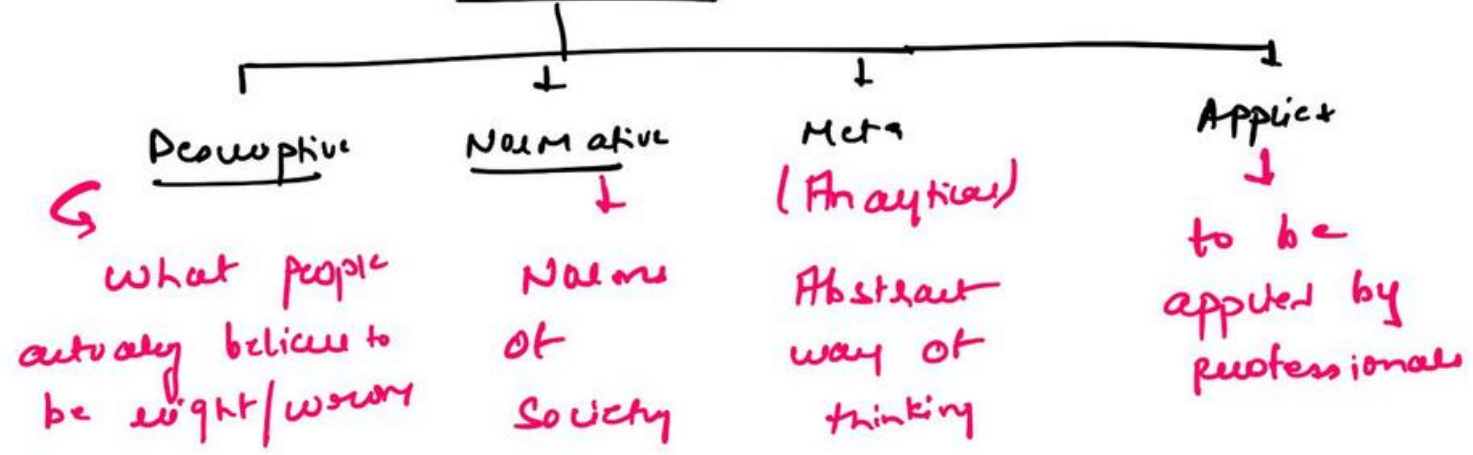 Descriptive
what people
actually believe to
be right/wrong
Normative
Norms
of
Society
Meta
(Analytical)
Abstract
way of
thinking
Applied
to be
applied by
professionals